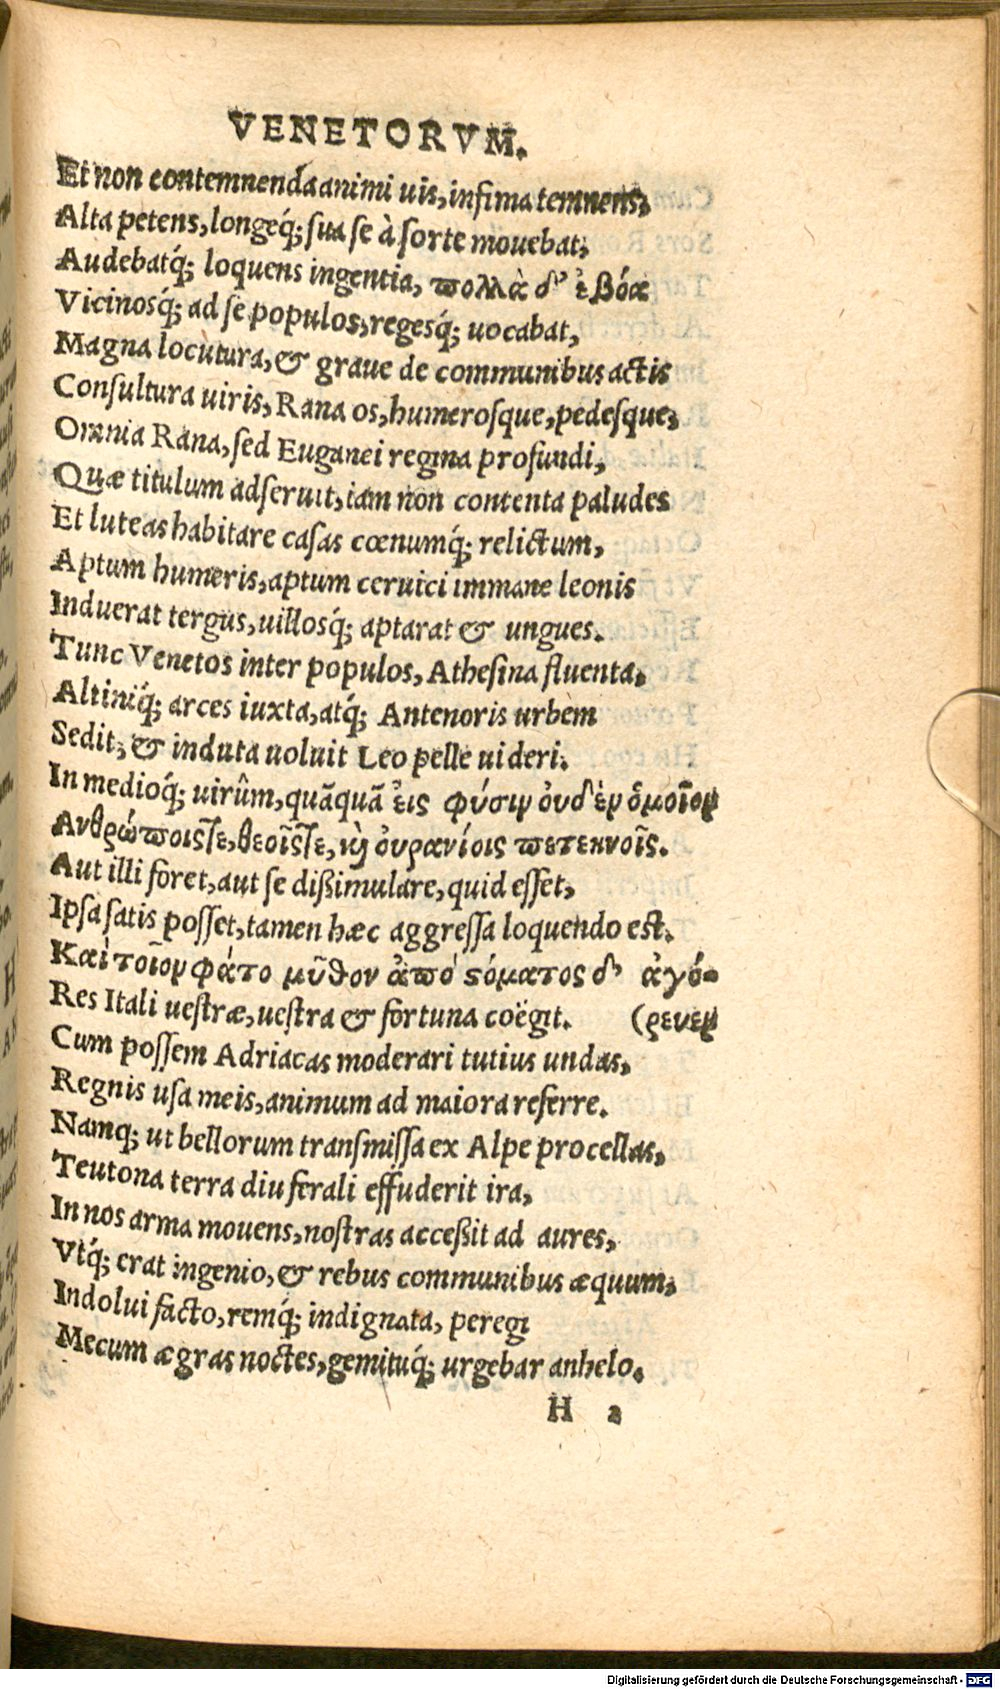 VENETORVM.
Et non contemnenda animi uis, infima temnens,
Alta petens, longeq́; sua se à sorte mouebat,
Audebatq́; loquens ingentia, πολλὰ δ' ἐβόα
Vicinosq́; ad se populos, regesq́; uocabat,
Magna locutura, & graue de communibus actis
Consultura uiris, Rana os, humerosque, pedesque,
Omnia Rana, sed Euganei regina profundi,
Quæ titulum adseruit, iam non contenta paludes
Et luteas habitare casas cœnumq́; relictum,
Aptum humeris, aptum ceruici immane leonis
Induerat tergus, uillosq́; aptarat & ungues.
Tunc Venetos inter populos, Athesina fluenta,
Altiniq́; arces iuxta, atq́; Antenoris urbem
Sedit, & induta uoluit Leo pelle uideri.
In medioq́; uirûm, quāquā ἐις φύσιν ὀυδ' ἐν ὁμοῖον
Ανθρώποις τε, θεοῖς τε, κὶ ὀυρανίοις πετεκνοῖς.
Aut illi foret, aut se dißimulare, quid esset,
Ipsa satis posset, tamen hæc aggressa loquendo est.
Καὶ τοῖον φάτο μῦθον ἀπὸ στόματος δ' ἀγό-
Res Itali uestræ, uestra & fortuna coëgit. (ρευεν
Cum possem Adriacas moderari tutius undas,
Regnis usa meis, animum ad maiora referre.
Namq; ut bellorum transmissa ex Alpe procellas,
Teutona terra diu ferali effuderit ira,
In nos arma mouens, nostras acceßit ad aures,
Vtq́; erat ingenio, & rebus communibus æquum,
Indolui facto, remq́; indignata, peregi
Mecum ægras noctes, gemituq́; urgebar anhelo.
H 2
Digitalisierung gefördert durch die Deutsche Forschungsgemeinschaft - DFG